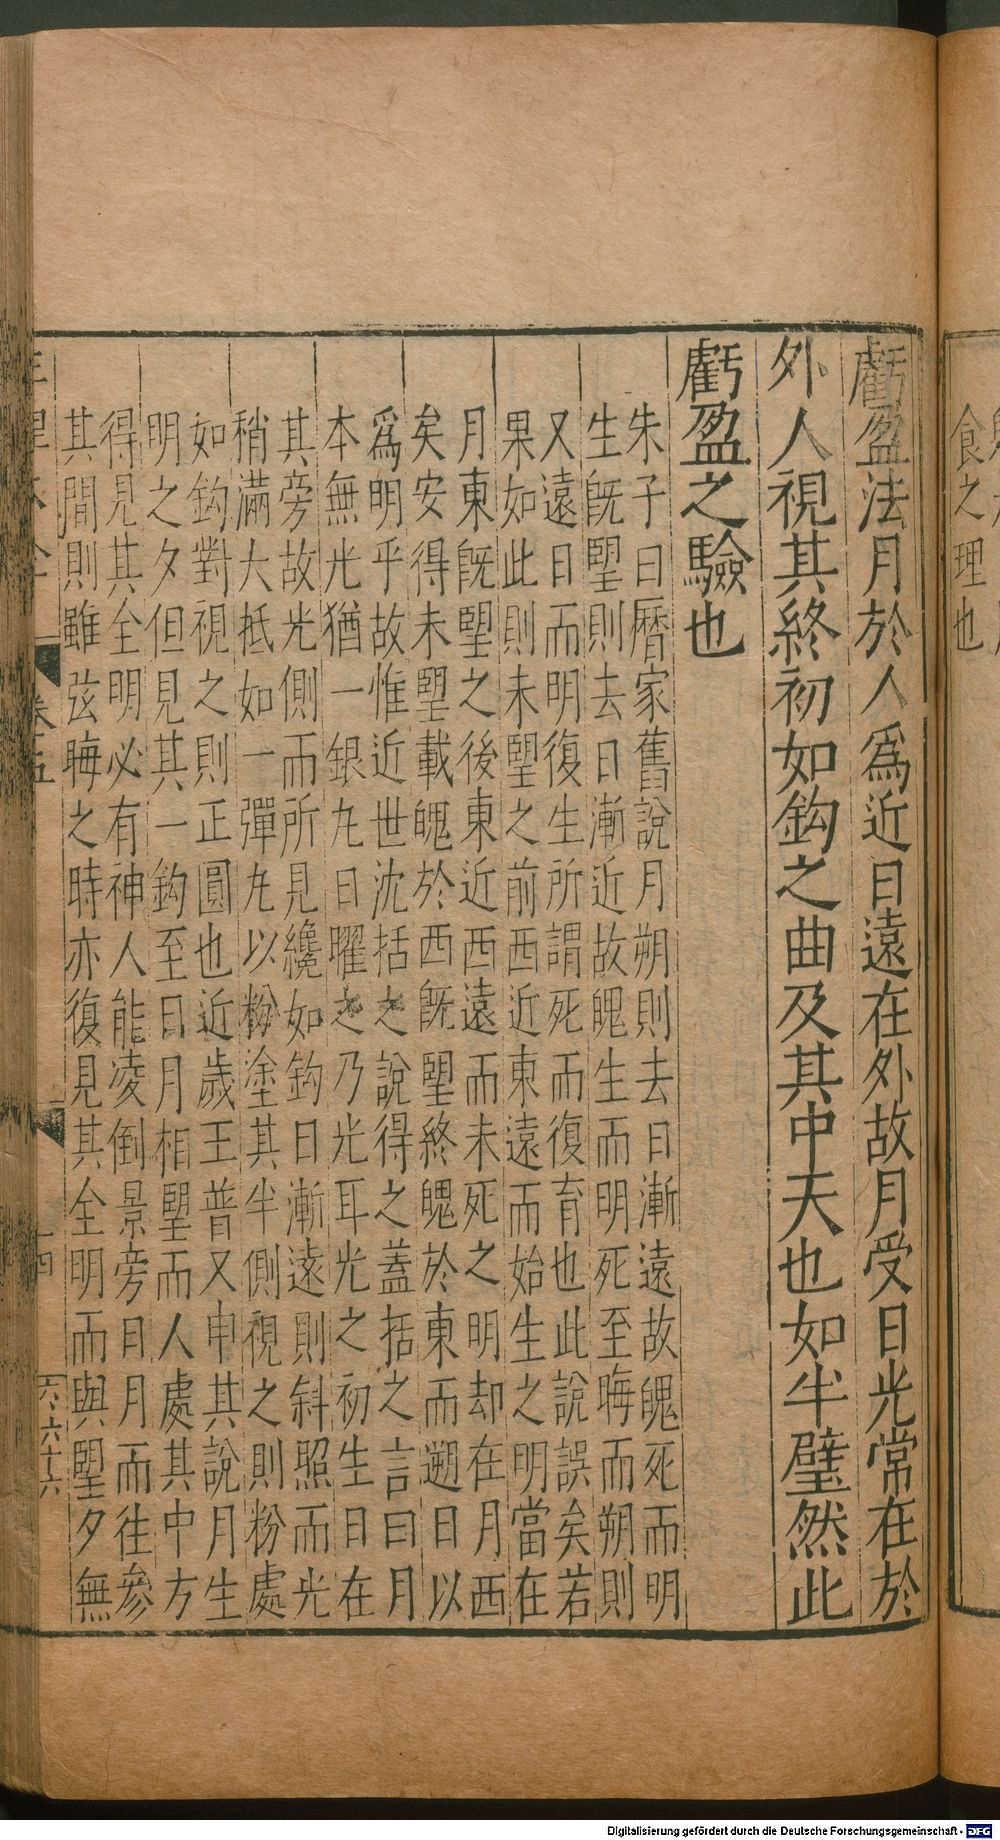 食之理也
虧盈法月於人爲近日遠在外故月受日光常在於
外人視其終初如鈎之曲及其中天也如半璧然此
虧盈之驗也
朱子曰曆家舊說月朔則去日漸遠故魄死而明
生旣朢則去日漸近故魄生而明死至晦而朔則
又遠日而明復生所謂死而復育也此說誤矣若
果如此則未朢之前西近東遠而始生之明當在
月東旣朢之後東近西遠而未死之明却在月西
矣安得未朢載魄於西旣朢終魄於東而遡日以
爲明乎故惟近世沈括之說得之蓋括之言曰月
本無光猶一銀丸日曜之乃光耳光之初生日在
其旁故光側而所見纔如鈎日漸遠則斜照而光
稍滿大抵如一彈丸以粉塗其半側視之則粉處
如鈎對視之則正圓也近歲王普又申其說月生
明之夕但見其一鈎至日月相朢而人處其中方
得見其全明必有神人能凌倒景旁日月而往參
其間則雖弦晦之時亦復見其全明而與朢夕無
卷五
十四
六六十六
Digitalisierung gefördert durch die Deutsche Forschungsgemeinschaft - DFG